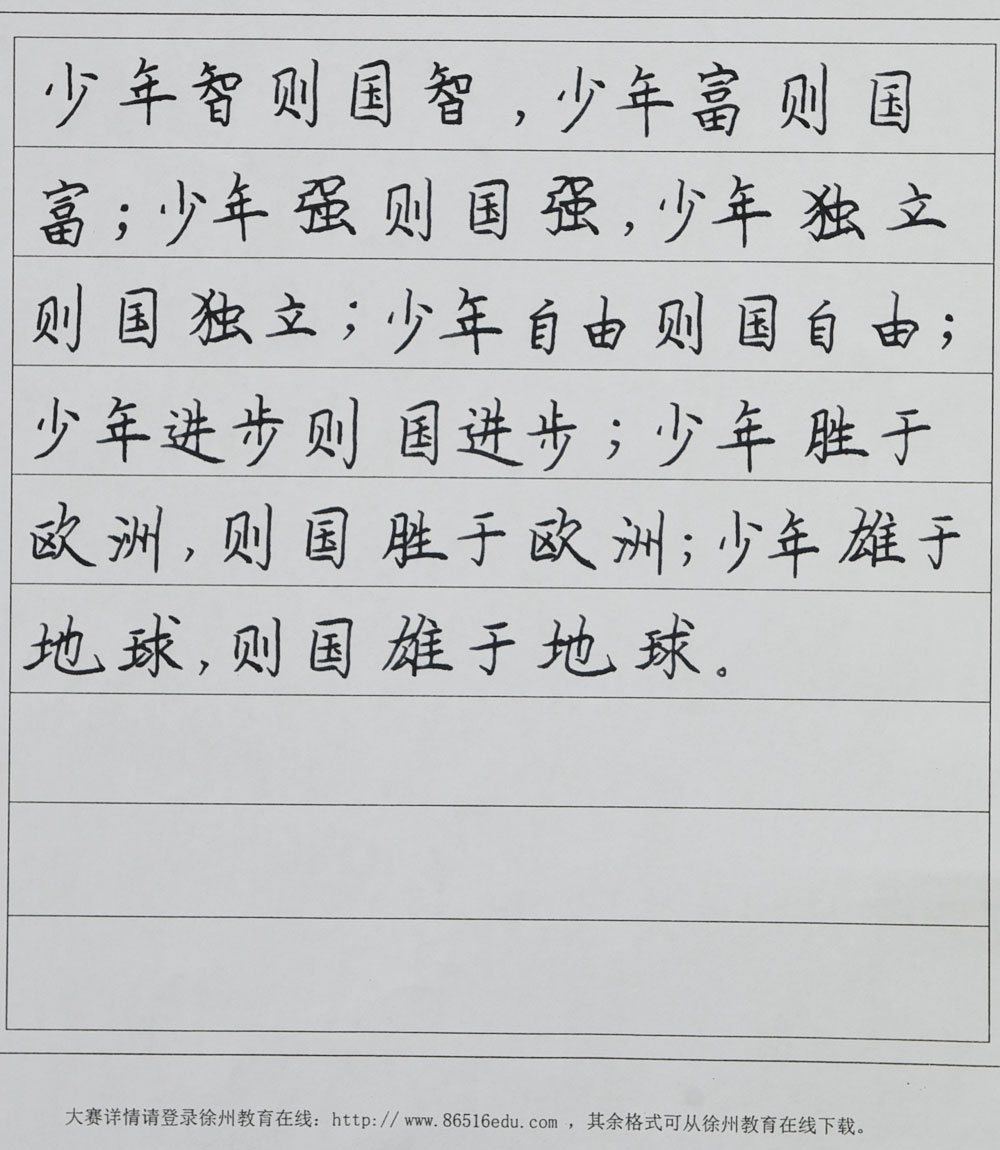 少年智则国智，少年富则国
富；少年强则国强，少年独立
则国独立；少年自由则国自由；
少年进步则国进步；少年胜于
欧洲，则国胜于欧洲；少年雄于
地球，则国雄于地球。
大赛详情请登录徐州教育在线：http://www.86516edu.com ，其余格式可从徐州教育在线下载。